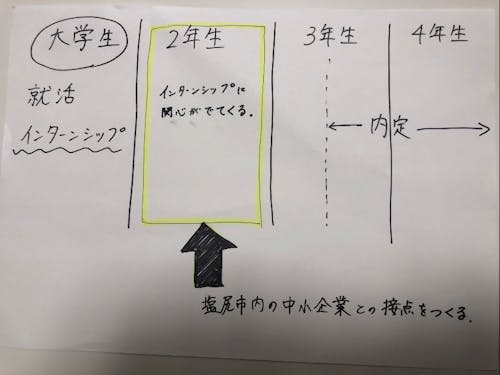 大学生
就活
インターンシップ
2年生
インターンシップに
関心がでてくる.
3年生
4年生
内定
塩尻市内の中小企業との接点をつくる.